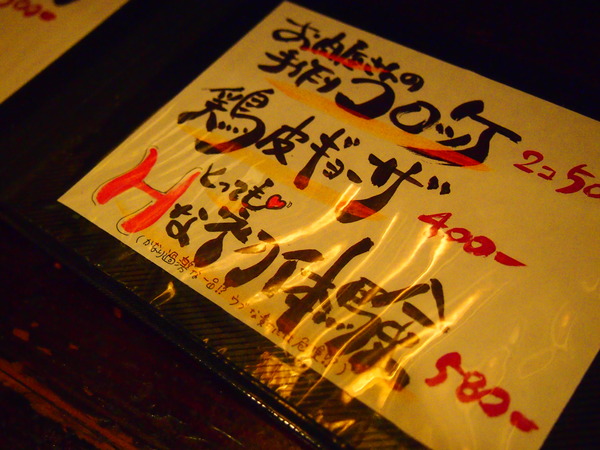 お肉屋さんの
手作りコロッケ
2コ 50
鶏皮ギョーザ
400-
とっても♥
Hな初体験
(かなり過激な一品!! ウブな
580-
00-